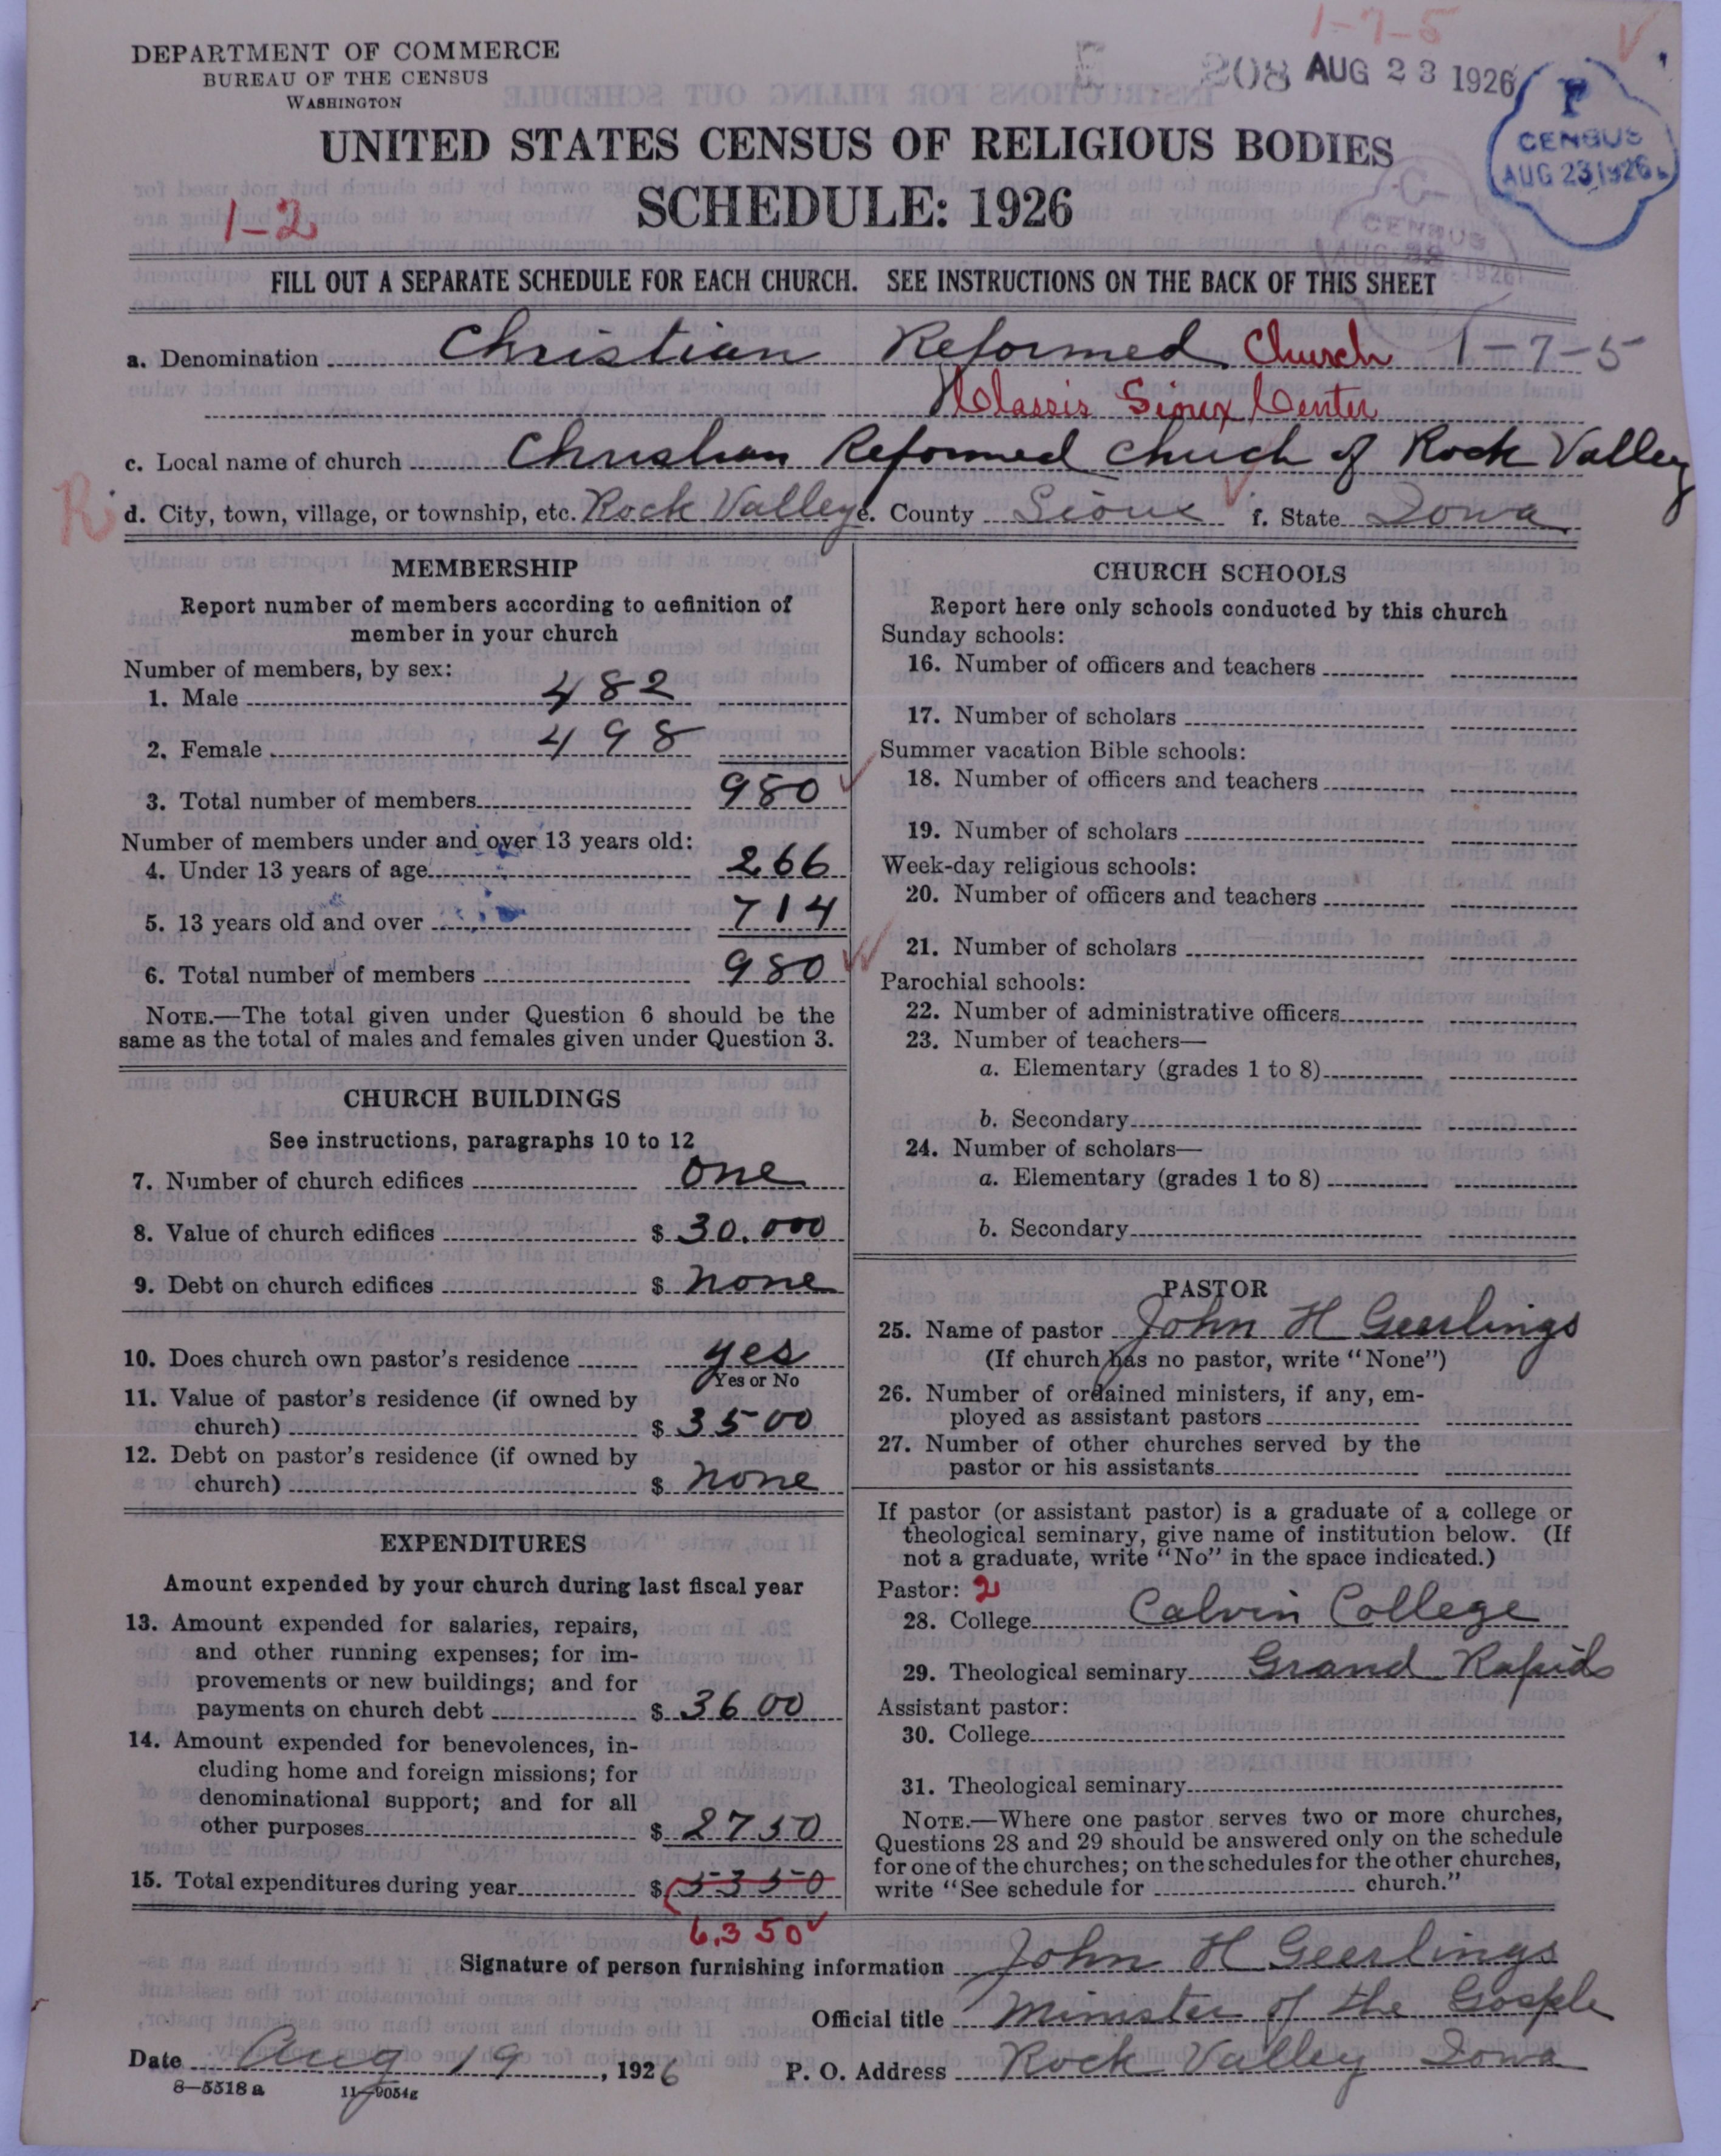 1-7-5
DEPARTMENT OF COMMERCE
BUREAU OF THE CENSUS
WASHINGTON
208 AUG 23 1926
P
CENSUS
AUG 23 1926
UNITED STATES CENSUS OF RELIGIOUS BODIES
SCHEDULE: 1926
1-2
C
CENSUS
AUG
1926
FILL OUT A SEPARATE SCHEDULE FOR EACH CHURCH. SEE INSTRUCTIONS ON THE BACK OF THIS SHEET
a. Denomination Christian Reformed Church 1-7-5
Classis Sioux Center
c. Local name of church Christian Reformed Church of Rock Valley
R
d. City, town, village, or township, etc. Rock Valley e. County Sioux f. State Iowa
MEMBERSHIP
Report number of members according to definition of
member in your church
Number of members, by sex:
1. Male 482
2. Female 498
3. Total number of members 980
Number of members under and over 13 years old:
4. Under 13 years of age 266
5. 13 years old and over 714
6. Total number of members 980
NOTE.—The total given under Question 6 should be the
same as the total of males and females given under Question 3.
CHURCH BUILDINGS
See instructions, paragraphs 10 to 12
7. Number of church edifices one
8. Value of church edifices $ 30.000
9. Debt on church edifices $ none
10. Does church own pastor's residence yes
Yes or No
11. Value of pastor's residence (if owned by
church) $ 3500
12. Debt on pastor's residence (if owned by
church) $ none
EXPENDITURES
Amount expended by your church during last fiscal year
13. Amount expended for salaries, repairs,
and other running expenses; for im-
provements or new buildings; and for
payments on church debt $ 3600
14. Amount expended for benevolences, in-
cluding home and foreign missions; for
denominational support; and for all
other purposes $ 2750
15. Total expenditures during year $ 5350
6.350
CHURCH SCHOOLS
Report here only schools conducted by this church
Sunday schools:
16. Number of officers and teachers
17. Number of scholars
Summer vacation Bible schools:
18. Number of officers and teachers
19. Number of scholars
Week-day religious schools:
20. Number of officers and teachers
21. Number of scholars
Parochial schools:
22. Number of administrative officers
23. Number of teachers—
a. Elementary (grades 1 to 8)
b. Secondary
24. Number of scholars—
a. Elementary (grades 1 to 8)
b. Secondary
PASTOR
25. Name of pastor John H Geerlings
(If church has no pastor, write "None")
26. Number of ordained ministers, if any, em-
ployed as assistant pastors
27. Number of other churches served by the
pastor or his assistants
If pastor (or assistant pastor) is a graduate of a college or
theological seminary, give name of institution below. (If
not a graduate, write "No" in the space indicated.)
Pastor: 2
28. College Calvin College
29. Theological seminary Grand Rapids
Assistant pastor:
30. College
31. Theological seminary
NOTE.—Where one pastor serves two or more churches,
Questions 28 and 29 should be answered only on the schedule
for one of the churches; on the schedules for the other churches,
write "See schedule for church."
Signature of person furnishing information John H Geerlings
Official title Minister of the Gosple
Date Aug 19, 1926 P. O. Address Rock Valley Iowa
8—5518 a 11—9054g